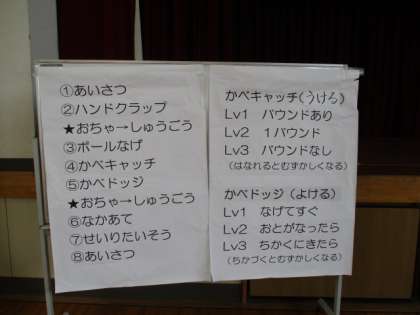 ①あいさつ
②ハンドクラップ
★おちゃ→しゅうごう
③ボールなげ
④かべキャッチ
⑤かべドッジ
★おちゃ→しゅうごう
⑥なかあて
⑦せいりたいそう
⑧あいさつ
かべキャッチ(うけろ)
Lv1 バウンドあり
Lv2 1バウンド
Lv3 バウンドなし
(はなれるとむずかしくなる)
かべドッジ(よける)
Lv1 なげてすぐ
Lv2 おとがなったら
Lv3 ちかくにきたら
(ちかづくとむずかしくなる)